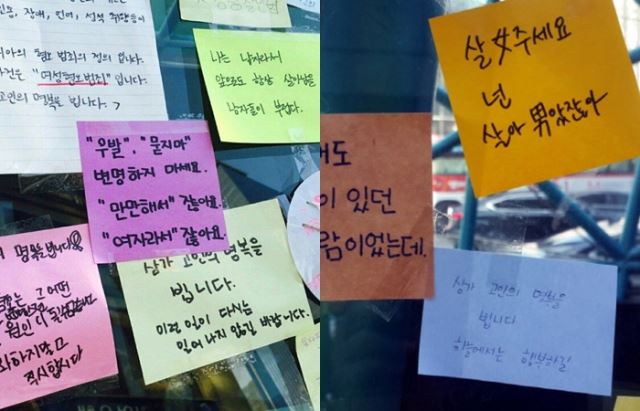 장애, 언어, 성적 취향등이
혐오 범죄의 정의 입니다.
"여성혐오범죄" 입니다.
고인의 명복을 빕니다.
나는 남자라서
앞으로도 항상 살아남을
남자들이 부럽다.
"우발", "묻지마"
변명하지 마세요.
"만만해서" 잖아요.
"여자라서" 잖아요.
명복을 빕니다
어떤
원인이
하지말고
직시합시다
삼가 고인의 명복을
빕니다.
이런 일이 다시는
일어나지 않길 바랍니다.
살女주세요
넌
살아男았잖아
도
이 있던
람이었는데.
삼가 고인의 명복을
빕니다
하늘에서는 행복하길